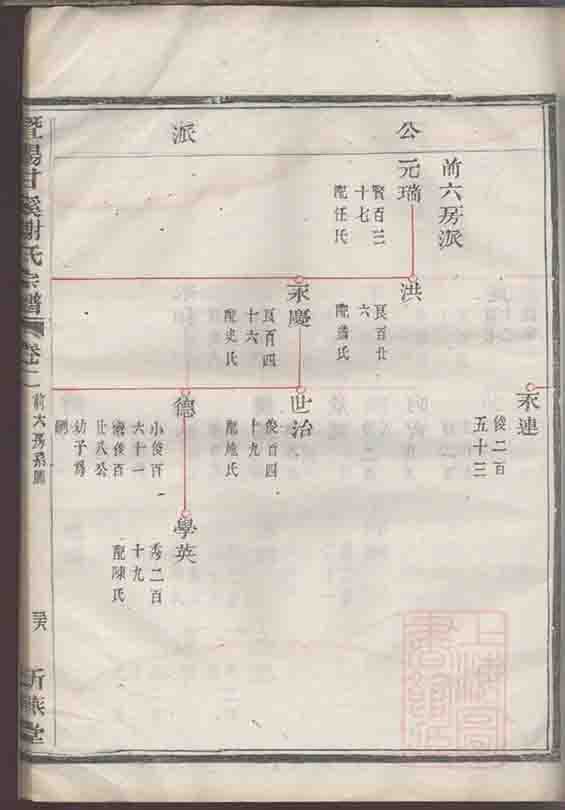 公
派
前六房派
元瑞
賢百三
十七
配任氏
洪
良百廿
六
配潘氏
永慶
良百四
十六
配史氏
永連
俊二百
五十三
世治
俊百四
十九
配
德
小俊百
六十一
俊百
廿八公
幼子爲
嗣
學英
秀二百
十九
配陳氏
暨陽甘溪謝氏宗譜
卷二
前六房系圖
上海圖書館藏